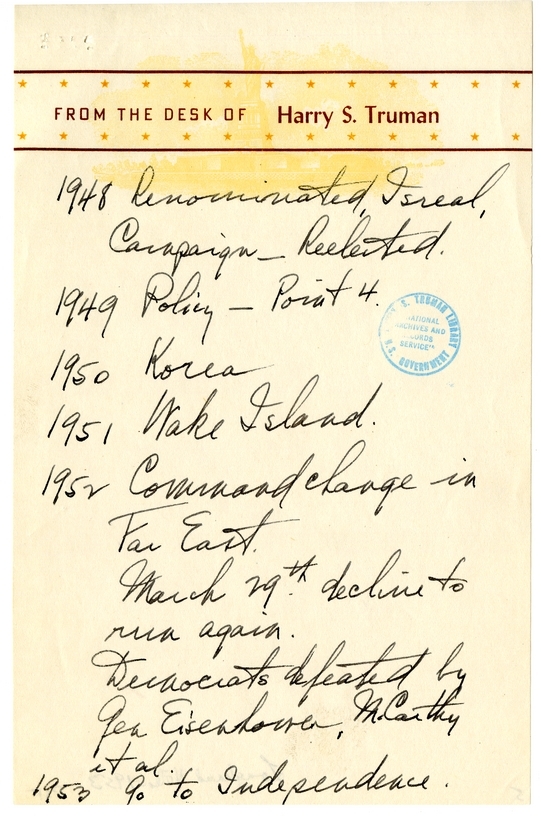 FROM THE DESK OF Harry S. Truman
1948 Renominated, Isreal,
Campaign — Reelected.
1949 Policy — Point 4.
S. TRUMAN LIBRARY
NATIONAL
ARCHIVES AND
RECORDS
SERVICE
U.S. GOVERNMENT
1950 Korea
1951 Wake Island.
1952 Command change in
Far East.
March 29th. decline to
run again.
Democrats defeated by
Gen Eisenhower, McCarthy
et al.
1953 go to Independence.